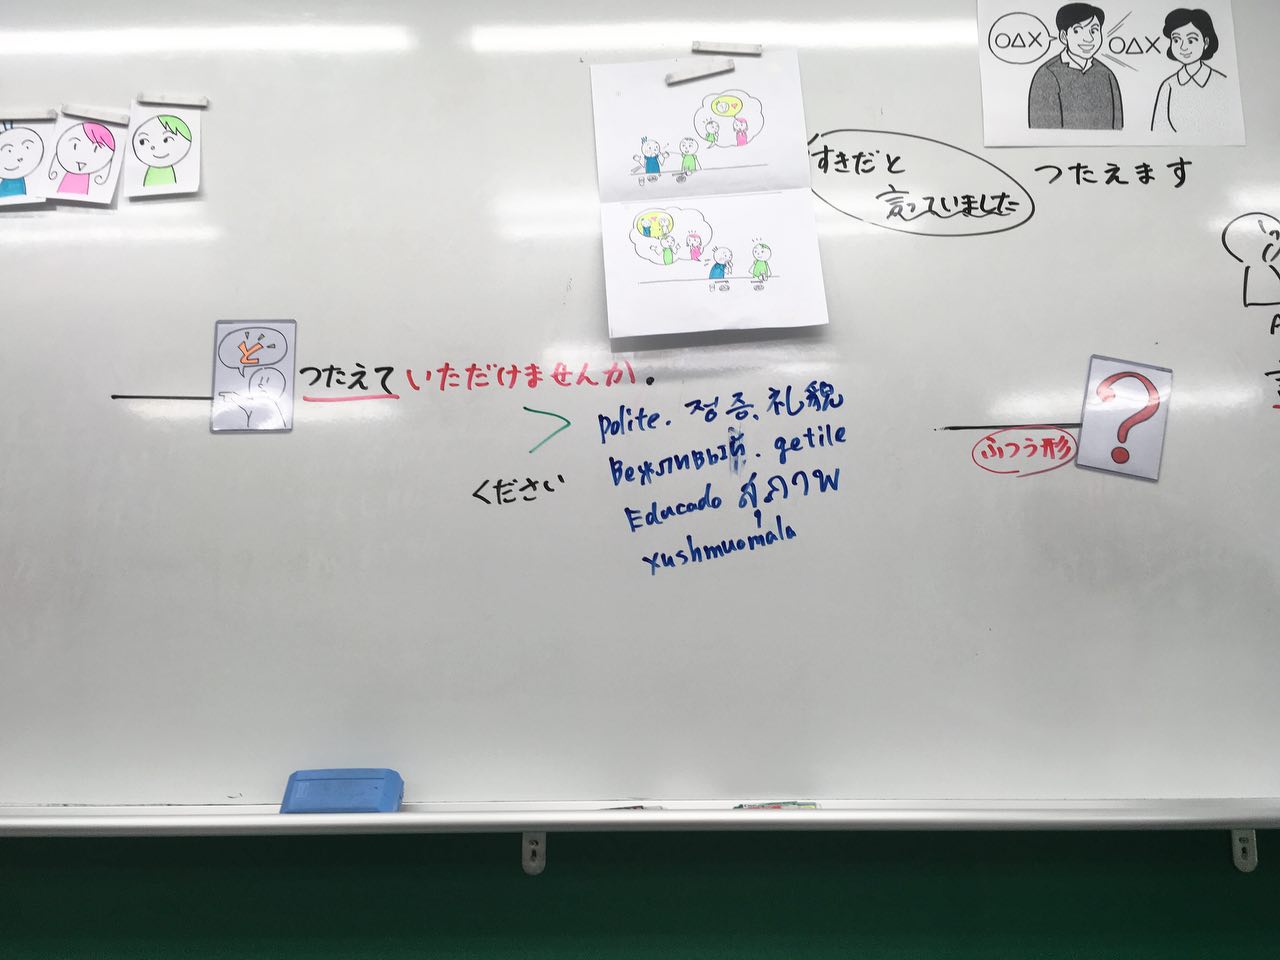 ○△× ○△×
つたえます
すきだと
言っていました
と
つたえていただけませんか。
>
ください
polite. 정중. 礼貌
Вежливый. getile
Educado สุภาพ
xushmuomala
ふつう形
?